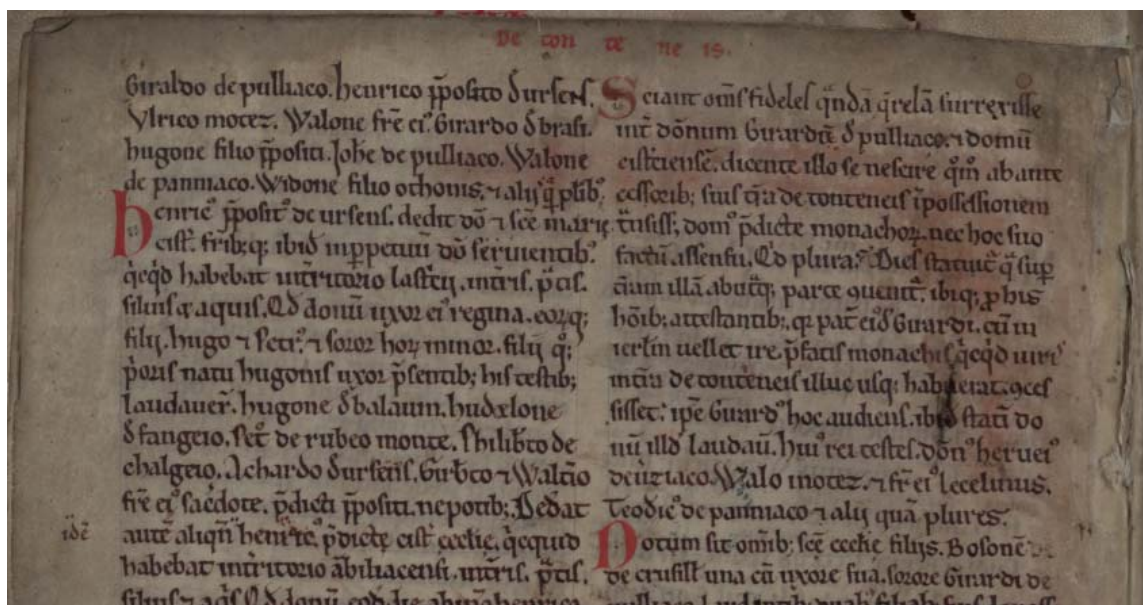 De con te ne is.
Giraldo de pulliaco. henrico p̄posito d̄ ursens.
Vlrico motez. Walone fr̄e ei᷒. Girardo d̄ brasi.
hugone filio p̄positi. Joh̄e de pulliaco. Walone
de panniaco. Widone filio othonis. ⁊ alijs q̄ plib᷒.
henric᷒ p̄posit᷒ de ursens. dedit dō ⁊ sc̄e marie
cist̄. frib; q; ibid̄ inp̄petuū dō seruientib᷒.
q̇cq̇d habebat int̄ritorio lasteij. int̄ris. p̄tis.
siluis ⁊ aquis. Qd̄ donū uxor ei᷒ regina. eorq;
filij. hugo ⁊ sect̄. ⁊ soror hoꝝ minor. filij q᷒;
p̄oris natu hugonis uxor p̄sentib; his testib;
laudauer̄. hugone d̄ balaun. hudelone
d̄ fangeio. set̄ de rubeo monte. Philib̄to de
chalgeio. Achardo d̄ ursens̄. Girb̄to ⁊ Walt̄io
fr̄e ei᷒ sac̄dote. p̄dicti p̄positi. nepotib; Dedat
idē
autē aliqn̄ henric᷒. p̄dicte cist̄ eccl̄ie. q̇cquid
habebat int̄ritorio ābiliacensi. int̄ris. p̄tis.
Sciant om̄s fideles q̄ndā q̄relā surrexisse
int̄ dōnum Girardū d̄ pulliaco. ⁊ domū
cist̄ciensē. dicente illo se nescire q̄m ab ante
cessorib; suis t̄ra de conteneis ī possessionem
t̄nsiss; dom᷒ p̄dicte monachoꝝ. nec hoc suo
factū assensu. Qd̄ plura? Dies statuit̄ q̄ sup̄
t̄ram illā ab utq; parte ꝯuenit̄. ibiq; ꝓ his
hōib; attestantib;. q̇ pat̄ eid̄ Girardi. cū in
ierl̄m uellet ire. p̄fatis monachis q̇cq̇d iuris
int̄ra de conteneis illuc usq; habuerat. ꝯces
sisset. ip̄e Girard᷒ hoc audiens. ibid̄ stati do
nū illd̄ laudau̅. hui᷒ rei testes. dōn᷒ herue᷒
Walo motez. ⁊ fr̄ ei᷒ lecelinus.
Teodic᷒ de panniaco ⁊ alij quā plures.
Notum sit om̄ib; sc̄e eccl̄ie filijs. Bosonē
de crusill̄ una cū uxore sua. sorore Girardi de